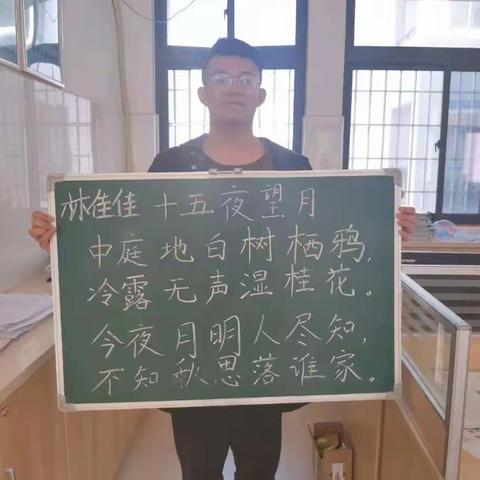 林佳佳 十五夜望月
中庭地白树栖鸦,
冷露无声湿桂花。
今夜月明人尽知,
不知秋思落谁家。